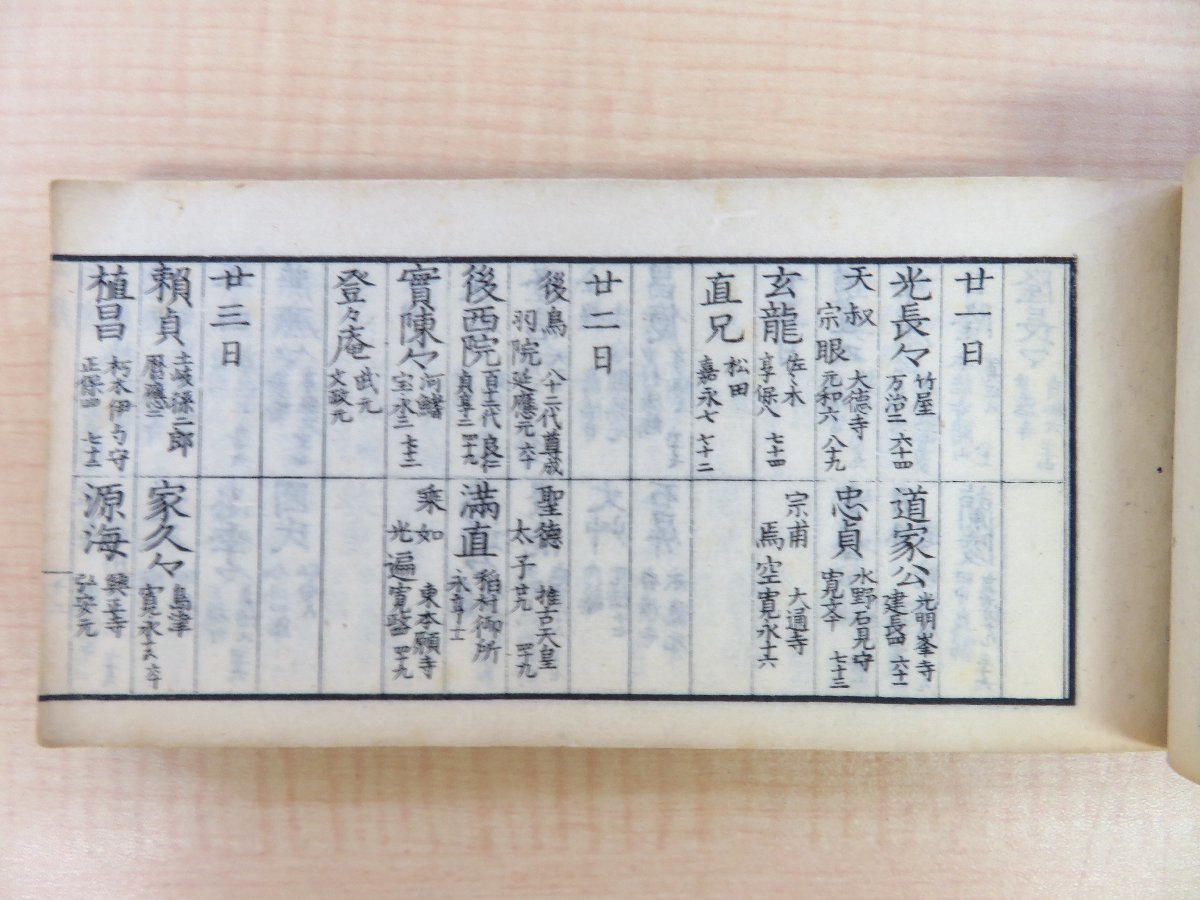 廿一日
光長々 竹屋 万治二 六十四
道家公 光明峯寺 建長四 六十一
天叔宗眼 大徳寺 元和六 八十九
忠貞 水野石見守 寛文十 七十三
玄龍 佐々木 享保八 七十四
宗甫焉空 大通寺 寛永十六
直兄 松田 嘉永七 七十二
廿二日
後鳥羽院 八十二代尊成 延應元 六十
聖徳太子 推古天皇 廿九 四十九
後西院 百十二代良仁 貞享二 四十九
満直 稲村御所 永享十一
實陳々 河鰭 宝永三 七十二
乘如光遍 東本願寺 寛政四 四十九
登々庵 武元 文政元
廿三日
頼貞 土岐孫二郎 暦應二
家久々 島津 寛永十五 六十
植昌 朽木伊与守 正保四 七十二
源海 興正寺 弘安元